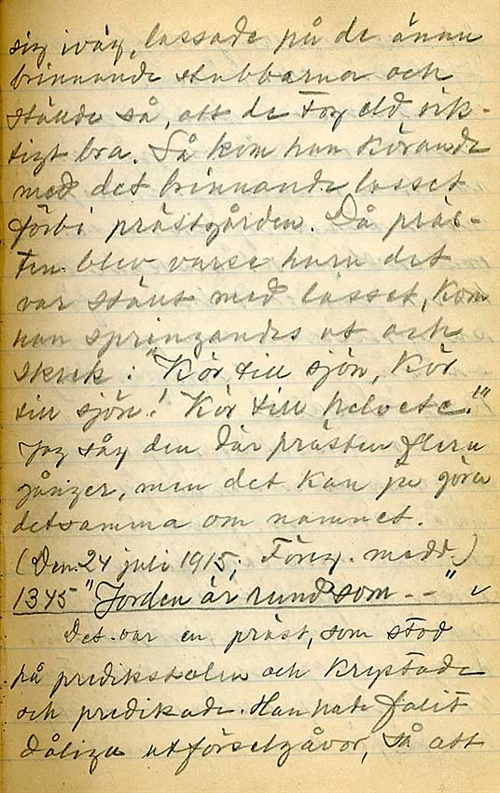 sig iväg, lassade på de ännu
brinnande stubbarna och
ställde så, att de tog eld rik-
tigt bra. Så kom han körande
med det brinnande lasset
förbi prästgården. Då präs-
ten blev varse huru det
var ställt med lasset, kom
han springandes ut och
skrek: "Kör till sjön, kör
till sjön! Kör till helvete!"
Jag såg den där prästen flera
gånger, men det kan ju göra
detsamma om namnet.
(Den 24 juli 1915; Föreg. medd.)
1345 "Jorden är rund som - -" v
Det var en präst, som stod
på predikstolen och krystade
och predikade. Han hade fått
dåliga utförselgåvor, så att